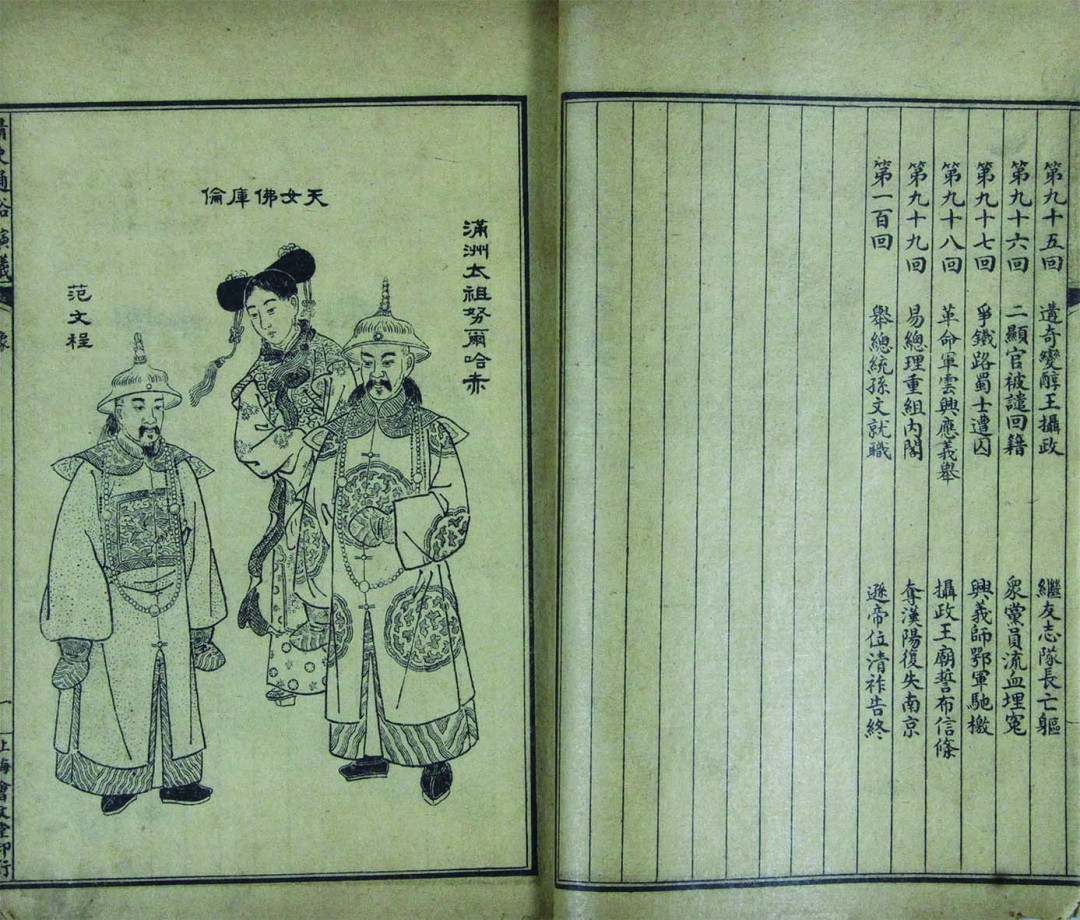 第九十五回　遘奇變醇王攝政　繼友志隊長亡軀
第九十六回　二顯官被譴回籍　眾黨員流血埋冤
第九十七回　爭鐵路蜀士遭囚　興義師鄂軍馳檄
第九十八回　革命軍雲興應義舉　攝政王廟誓布信條
第九十九回　易總理重組內閣　奪漢陽復失南京
第一百回　舉總統孫文就職　遜帝位清祚告終
滿洲太祖努爾哈赤
天女佛庫倫
范文程
清史通俗演義　像　一　上海會文堂印行